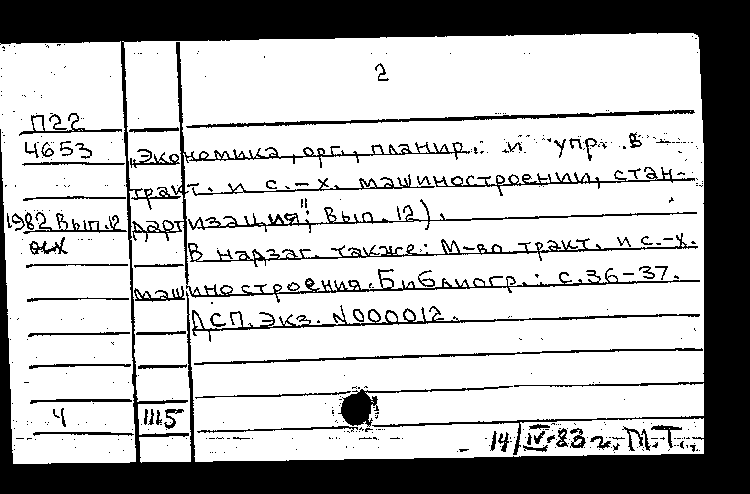 2
П22
4653 „Экономика, орг., планир. и упр. в
тракт. и с.-х. машиностроении, стан-
1982 Вып.12 дартизация"; Вып. 12).
В надзаг. также: М-во тракт. и с.-х.
машиностроения. Библиогр.: с.36-37.
ДСП. Экз. N000012.
4 1115
14/IV-83 г. М.Т.